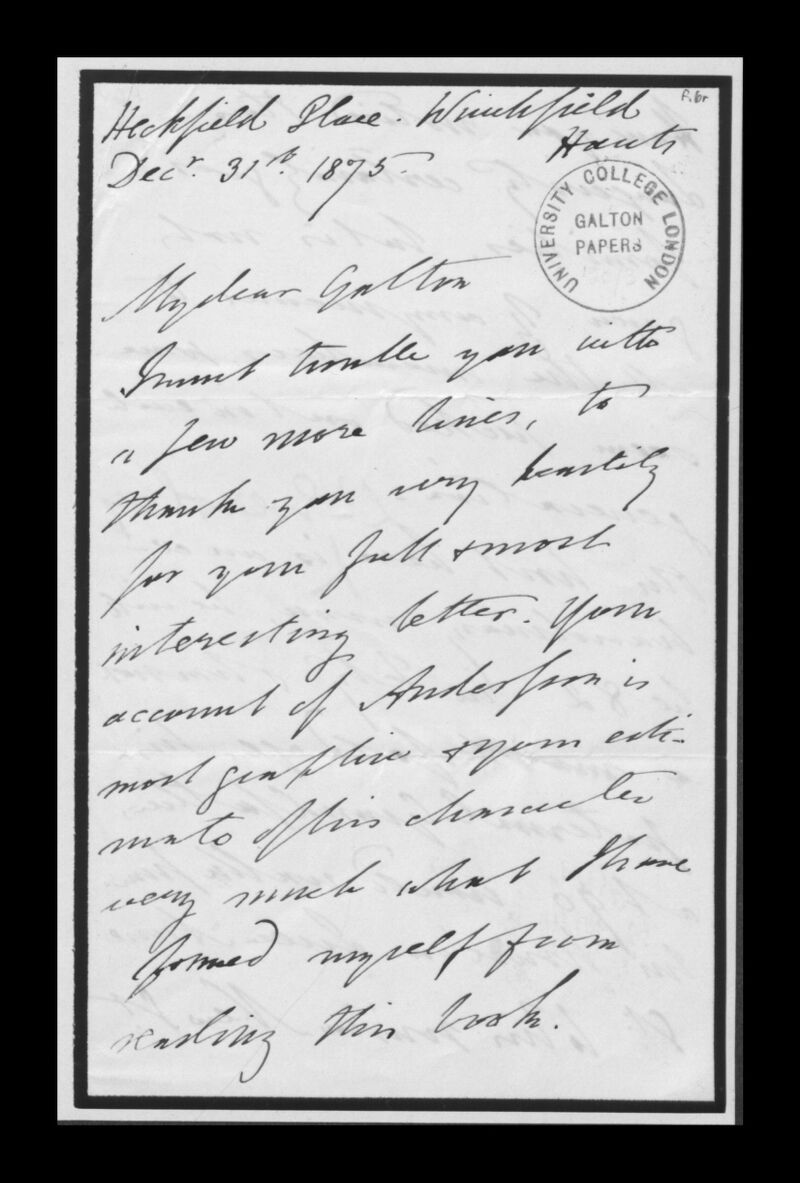 P.6r
Heckfield Place. Winchfield
Hants
Decr. 31st. 1875.
UNIVERSITY COLLEGE LONDON
GALTON
PAPERS
My dear Galton
I must trouble you with
a few more lines, to
thank you very heartily
for your full & most
interesting letter. Your
account of Andersson is
most graphic & your esti-
mate of his character
very much what I have
formed myself from
reading this book.